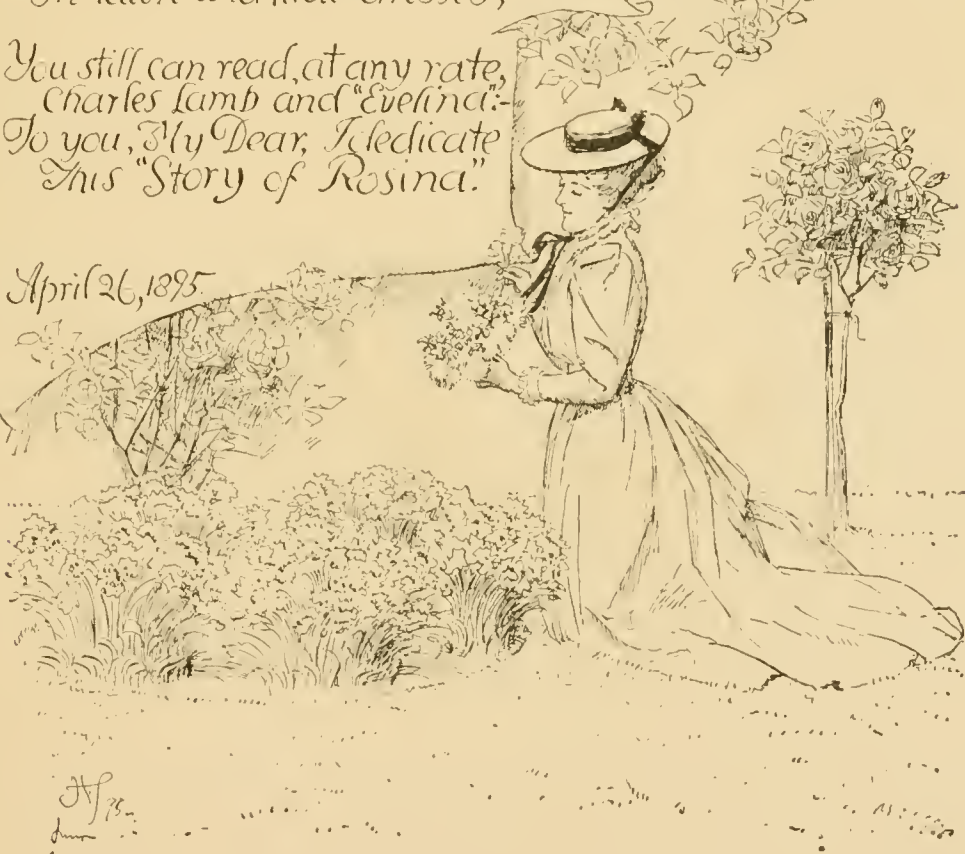 You still can read, at any rate,
Charles Lamb and "Evelina":-
To you, My Dear, I dedicate
This "Story of Rosina".
April 26, 1895
HT 95
June